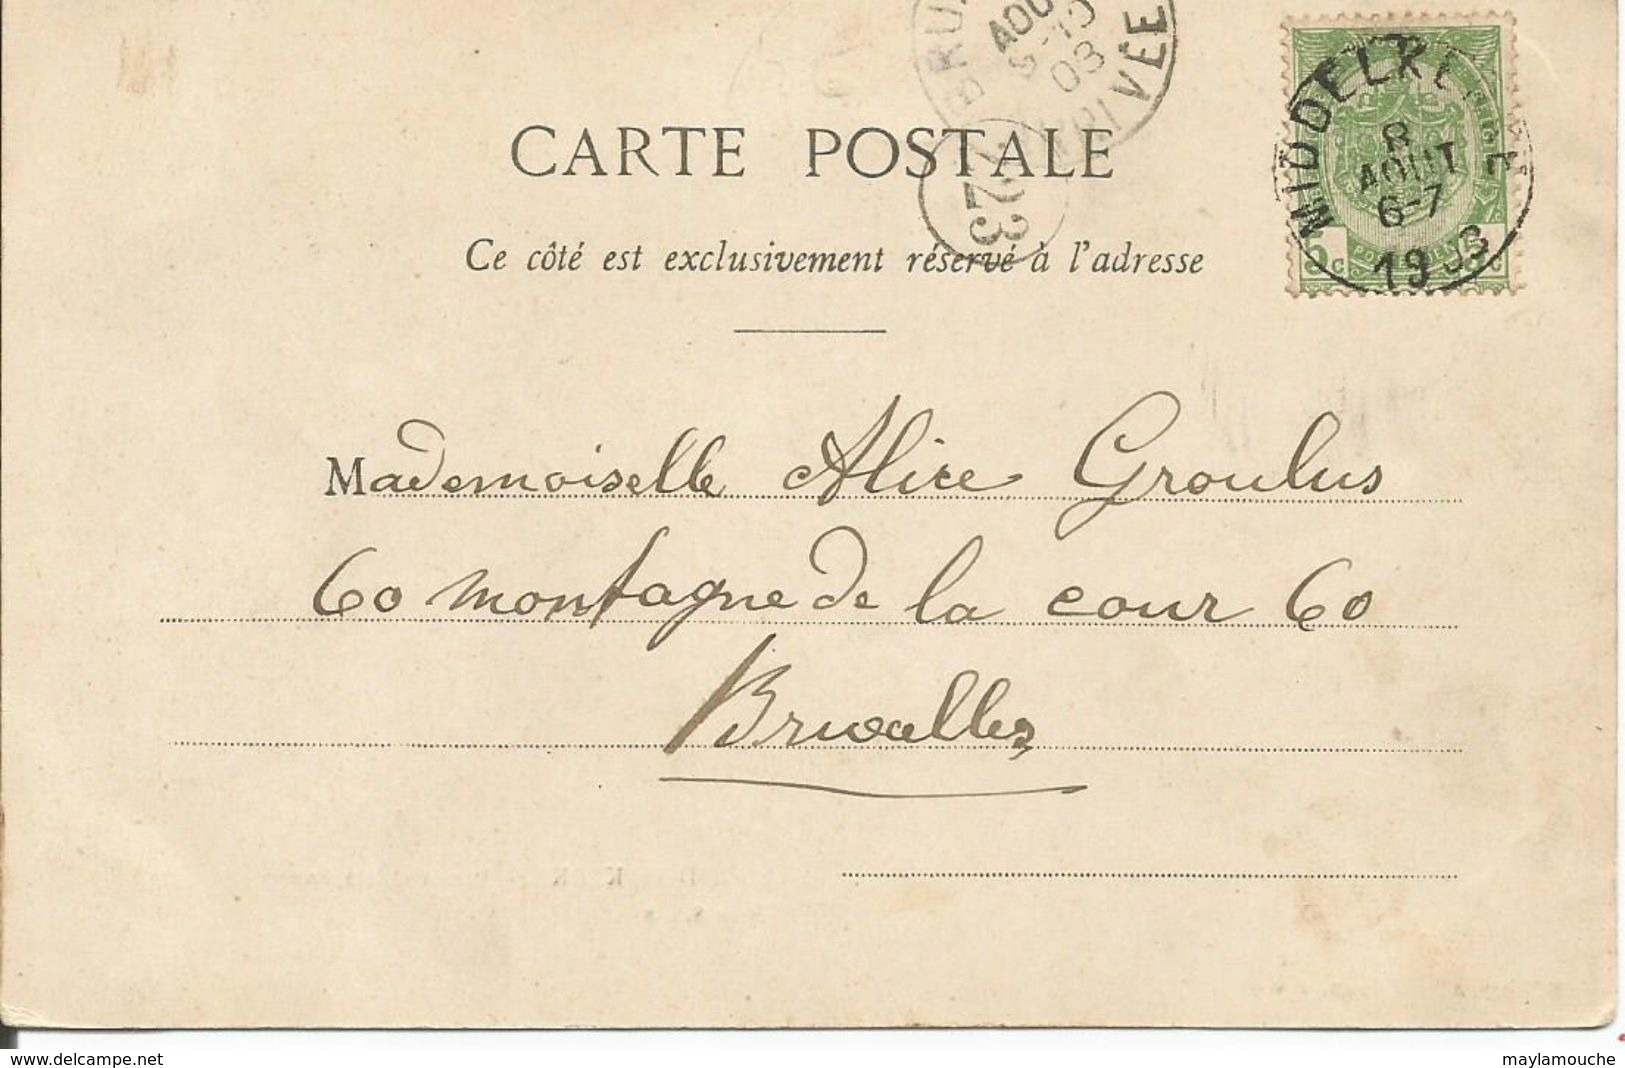 BRU
AOU
8-10
03
ARRIVÉE
MIDDELKE
8
AOUT
6-7
1903
5c
5c
CARTE POSTALE
23
Ce côté est exclusivement réservé à l'adresse
Mademoiselle Alice Groulus
60 montagne de la cour 60
Bruxelles
www.delcampe.net
maylamouche